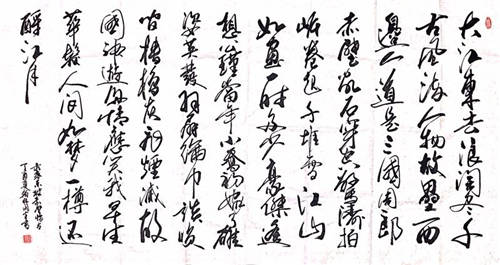 大江東去浪淘盡千
古風流人物故壘西
邊人道是三國周郎
赤壁亂石穿空驚濤拍
岸卷起千堆雪江山
如畫一時多少豪傑遙
想公瑾當年小喬初嫁了雄
姿英發羽扇綸巾談笑
間檣櫓灰飛煙滅故
國神遊多情應笑我早生
華髮人間如夢一樽還
酹江月